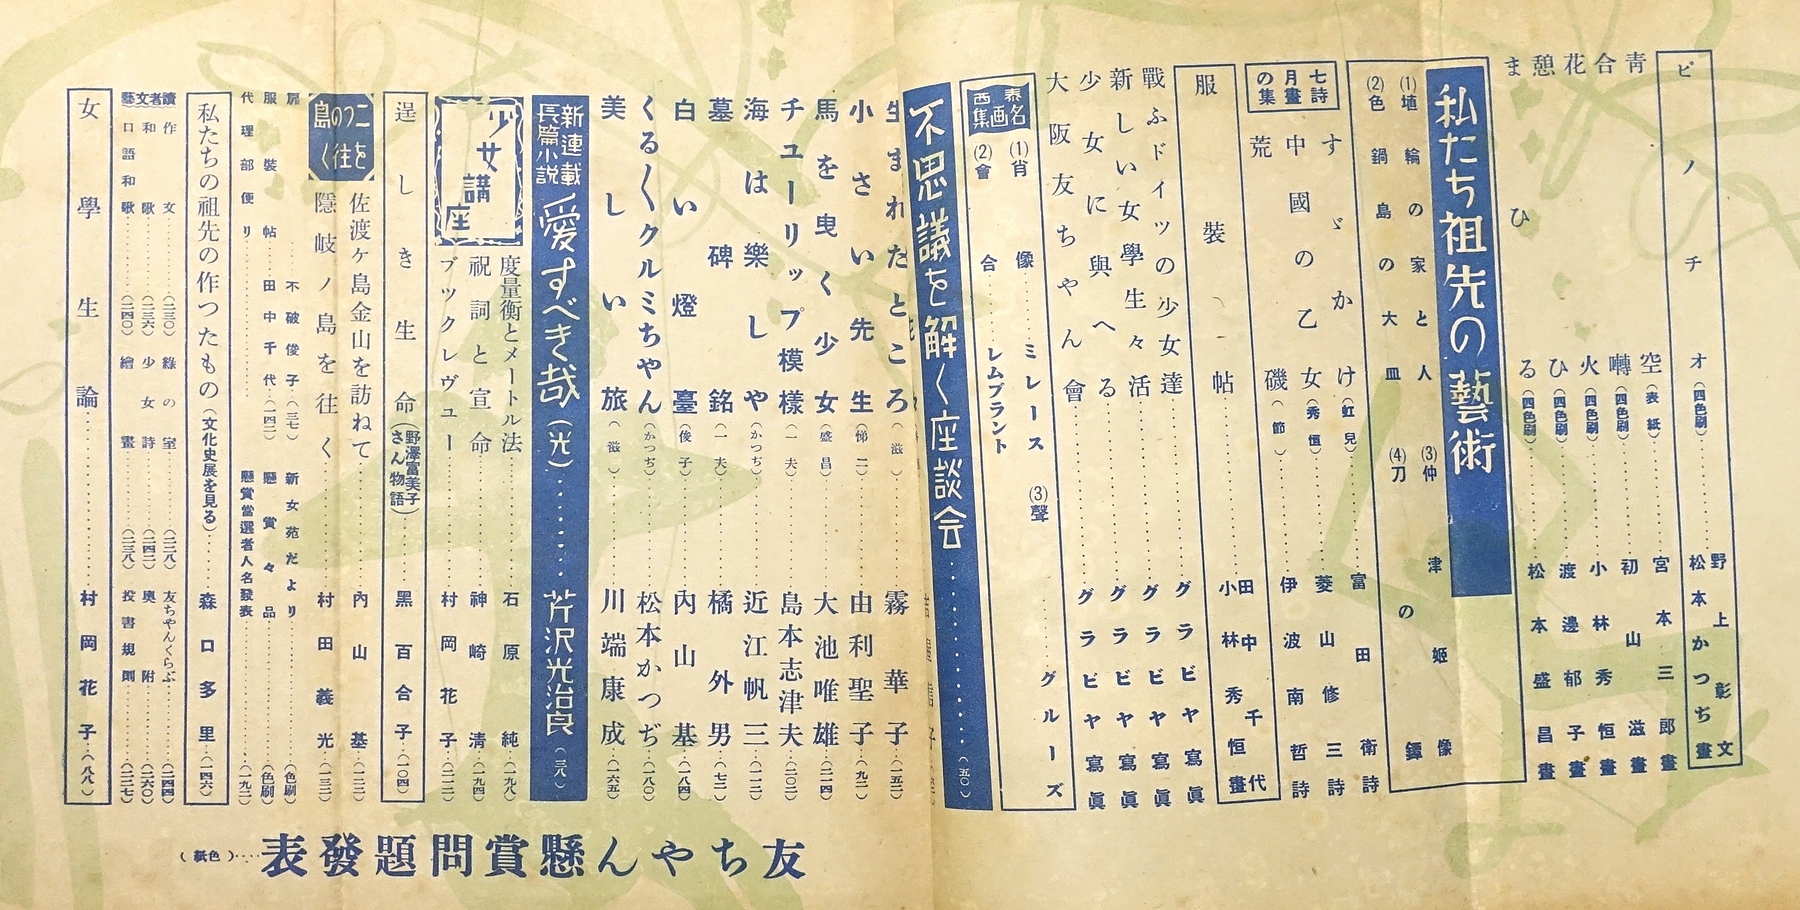 ピノチオ(四色刷)……野上彰文 松本かつぢ畫
青空(表紙)……宮本三郎畫
合囀(四色刷)……初山滋畫
花火(四色刷)……小林秀恒畫
憩ひ(四色刷)……渡邊郁子畫
まひる(四色刷)……松本盛昌畫
私たち祖先の藝術
(1)埴輪の家と人 (3)仲津姫像
(2)色鍋島の大皿 (4)刀の鐔
七月の詩畫集
すゞかけ(虹兒)……富田衛詩
中國の乙女(秀恒)……菱山修三詩
荒磯(節)……伊波南哲詩
服裝帖……田中千代 小林秀恒畫
戰ふドイツの少女達……グラビヤ寫眞
新しい女學生々活……グラビヤ寫眞
少女に與へる……グラビヤ寫眞
大阪友ちやん會……グラビヤ寫眞
泰西名画集
(1)肖像……ミレース (3)聲……グルーズ
(2)會合……レムブラント
不思議を解く座談会……(五〇)
生まれたところ(滋)……霧華子…(一五二)
小さい先生(悌二)……由利聖子…(九二)
馬を曳く少女(盛昌)……大池唯雄…(二一四)
チューリップ模樣(一夫)……島本志津夫…(二〇二)
海は樂しや(かつぢ)……近江帆三…(一一二)
墓碑銘(一夫)……橘外男…(七二)
白い燈臺(俊子)……內山基…(一八四)
くるくクルミちゃん(かつぢ)……松本かつぢ…(一八〇)
美しい旅(滋)……川端康成…(一六五)
新連載長篇小説 愛すべき哉(光)……芹沢光治良(三八)
少女講座
度量衡とメートル法……石原純…(一九八)
祝詞と宣命……神崎清…(一九四)
ブックレヴュー……村岡花子…(二二二)
逞しき生命(野澤富美子さん物語)……黑百合子…(一〇四)
二つの島を往く
佐渡ヶ島金山を訪ねて……內山基…(一三三)
隱岐ノ島を往く……村田義光…(一三三)
扉……不破俊子…(三七) 新女苑だより……(色刷)
服裝帖……田中千代…(一四二) 懸賞々品……(色刷)
代理部便り…… 懸賞當選者人名發表……(一九二)
私たちの祖先の作つたもの(文化史展を見る)……森口多里…(一四六)
讀者文藝
作文……(二三〇) 綠の室……(二二八) 友ちやんくらぶ……(二四四)
和歌……(二三六) 少女詩……(二四二) 奧附……(二六〇)
口語和歌……(二四〇) 繪畫……(二三八) 投書規則……(二二七)
女學生論……村岡花子…(八八)
友ちやん懸賞問題發表……(色紙)